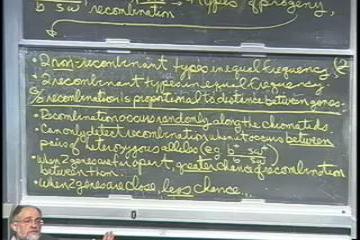 b su recombination → types of progeny
• 2 non-recombinant types in equal frequency (2
• 2 recombinant types in equal frequency.
% recombination is proportional to distance between genes.
• Recombination occurs randomly along the chromatids.
• Can only detect recombination when it occurs between
pairs of heterozygous alleles (eg b+ su+
b su)
• when 2 genes are far apart, greater chance of recombination
between them.
• when 2 genes are close, less chance...